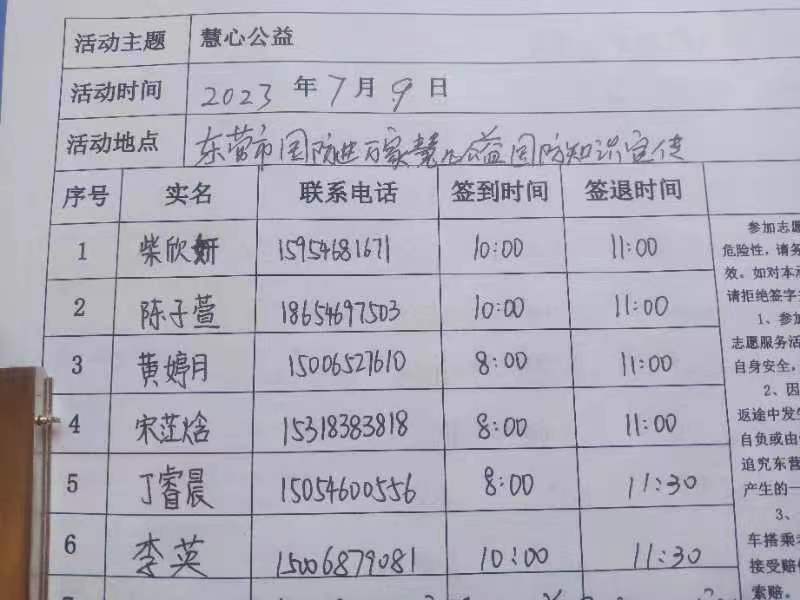 活动主题 慧心公益
活动时间 2023 年 7 月 9 日
活动地点 东营市国防进万家慧心公益国防知识宣传
序号 实名 联系电话 签到时间 签退时间
1 柴欣妍 15954681671 10:00 11:00
2 陈子萱 18654697503 10:00 11:00
3 黄婷月 15006527610 8:00 11:00
4 宋芷焓 15318383818 8:00 11:00
5 丁睿晨 15054600556 8:00 11:30
6 李英 15006879081 10:00 11:30
参加志愿
危险性，请务
效。如对本承
请拒绝签字
1、参加
志愿服务活
自身安全，
2、因
返途中发生
自负或由
追究东营
产生的一
3、
车搭乘
接受赔
索赔。